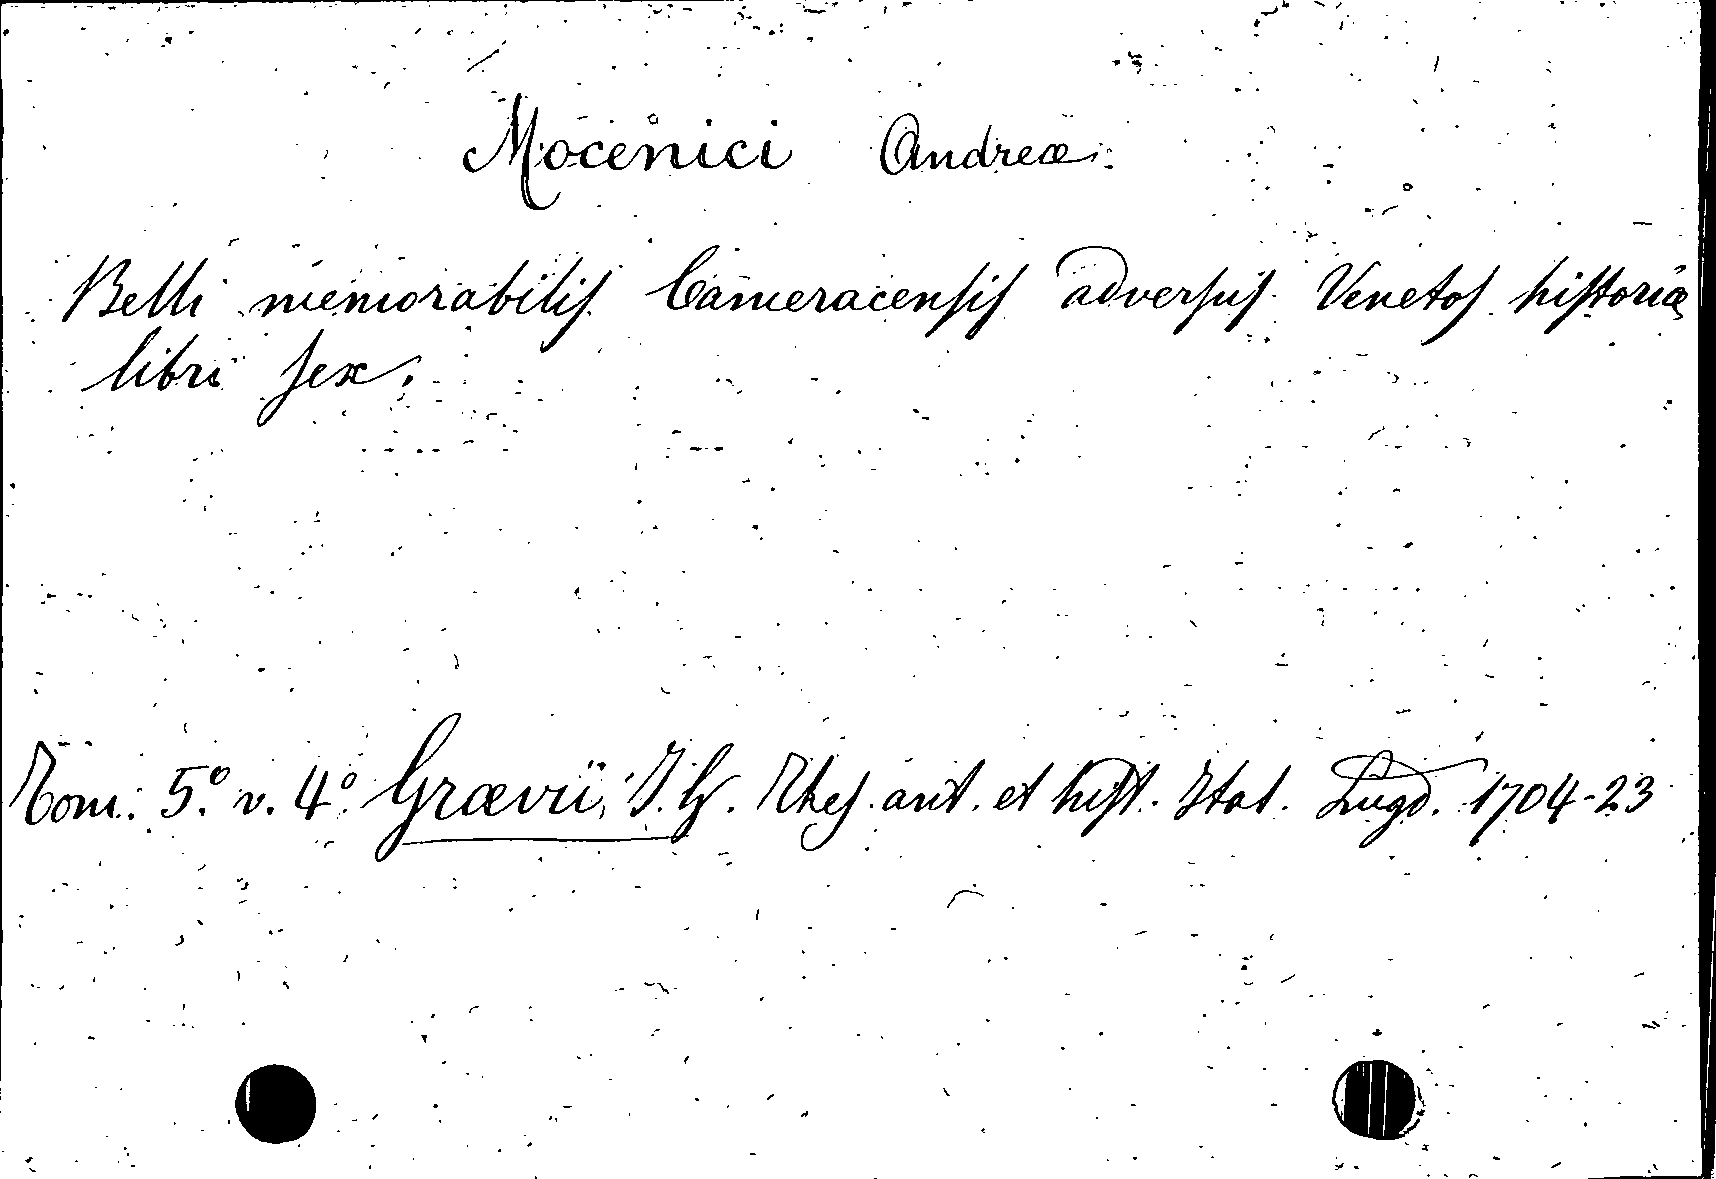 Mocenici Andreæ.
Belli memorabilis Cameracensis adversus Venetos historiæ
libri sex.
Tom. 5.º v. 4º Grævii, J. G. Thes. ant. et hist. Ital. Lugd. 1704-23